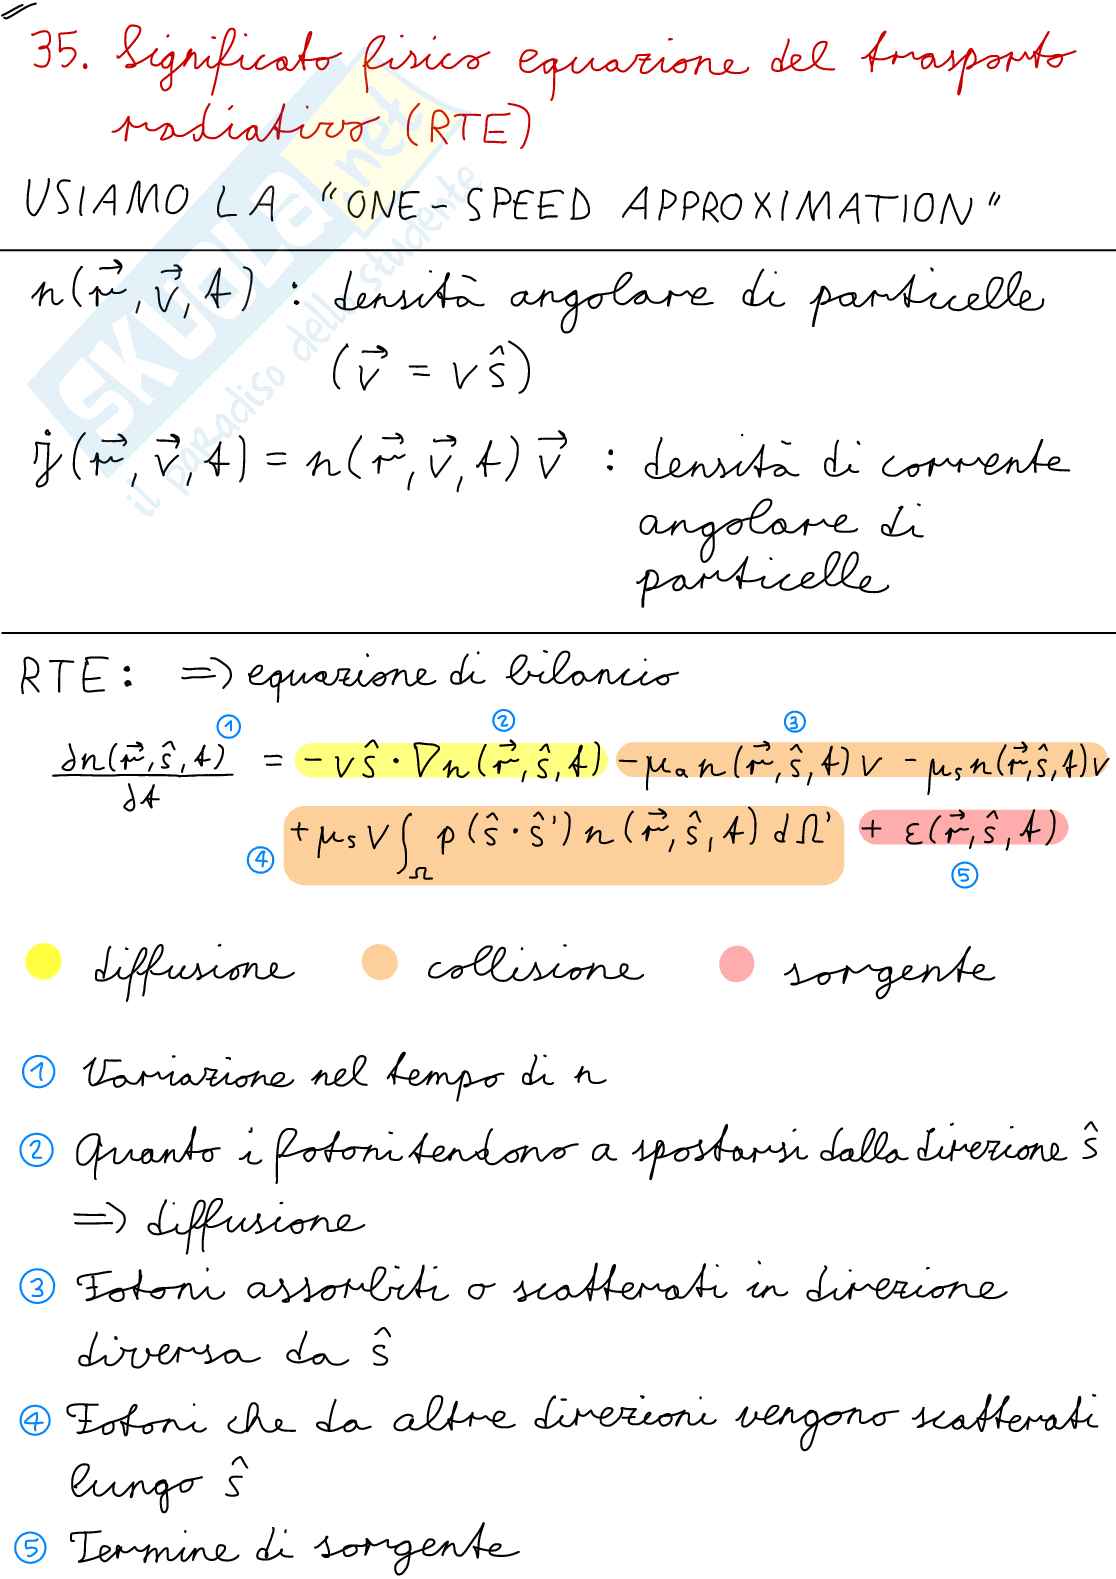 35. Significato fisico equazione del trasporto
radiativo (RTE)
USIAMO LA "ONE-SPEED APPROXIMATION"
n(r⃗, v⃗, t) : densità angolare di particelle
(v⃗ = v ŝ)
j⃗(r⃗, v⃗, t) = n(r⃗, v⃗, t) v⃗ : densità di corrente
angolare di
particelle
RTE: => equazione di bilancio
① ② ③
∂n(r⃗, ŝ, t)/∂t = -v ŝ · ∇n(r⃗, ŝ, t) -μₐ n(r⃗, ŝ, t) v -μₛ n(r⃗, ŝ, t) v
④ +μₛ v ∫_Ω p(ŝ · ŝ') n(r⃗, ŝ, t) dΩ' + ε(r⃗, ŝ, t) ⑤
diffusione collisione sorgente
① Variazione nel tempo di n
② Quanto i fotoni tendono a spostarsi dalla direzione ŝ
=> diffusione
③ Fotoni assorbiti o scatterati in direzione
diversa da ŝ
④ Fotoni che da altre direzioni vengono scatterati
lungo ŝ
⑤ Termine di sorgente
SKUOLA.net
il paradiso dello studente